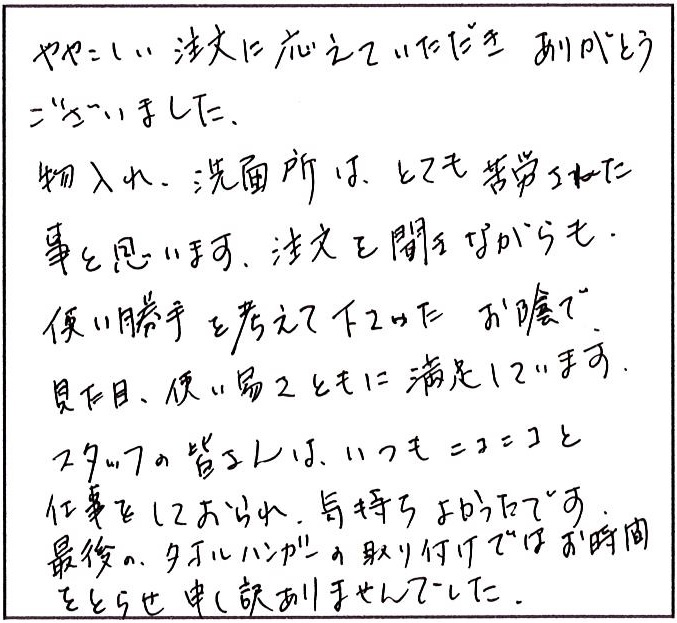 ややこしい 注文に応えていただき ありがとう
ございました、
物入れ、洗面所は、とても 苦労された
事と思います、注文を聞きながらも、
使い勝手を考えて下さった お陰で、
見た目、使い易さともに満足しています、
スタッフの皆さんは、いつもニコニコと
仕事をしておられ、気持ちよかったです、
最後の、タオルハンガーの取り付けではお時間
をとらせ申し訳ありませんでした、